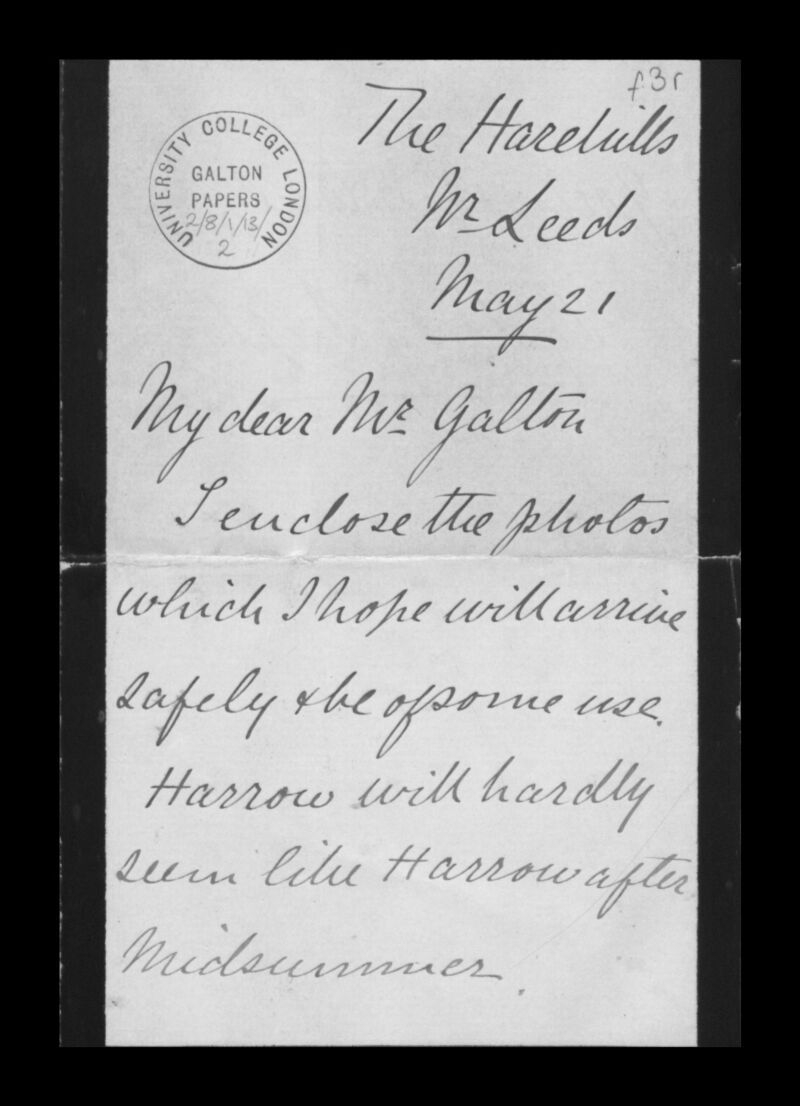 f3r
UNIVERSITY COLLEGE LONDON
GALTON
PAPERS
2/8/1/13/
2
The Harehills
Nr Leeds
May 21
My dear Mr Galton
I enclose the photos
which I hope will arrive
safely & be of some use.
Harrow will hardly
seem like Harrow after
Midsummer.